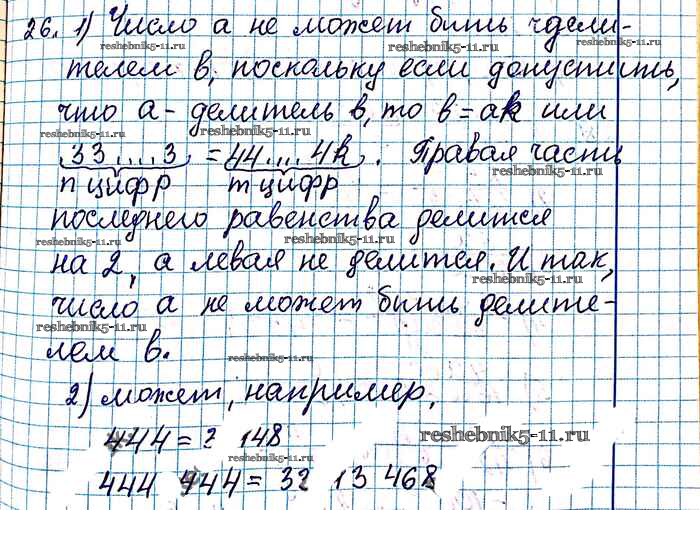 26. 1) Число а не может быть чдели-
reshebnik5-11.ru
reshebnik5-11.ru
телем в, поскольку если допустить,
что а - делитель в, то в = ак или
reshebnik5-11.ru
reshebnik5-11.ru
33....3 = 44....4k. Правая часть
reshebnik5-11.ru
n цифр m цифр
последнего равенства делится
reshebnik5-11.ru
reshebnik5-11.ru
на 2, а левая не делится. И так,
reshebnik5-11.ru
число а не может быть делите-
reshebnik5-11.ru
лем в.
reshebnik5-11.ru
2) может, например,
444 = 2 148
reshebnik5-11.ru
reshebnik5-11.ru
444 444 = 32 13 468